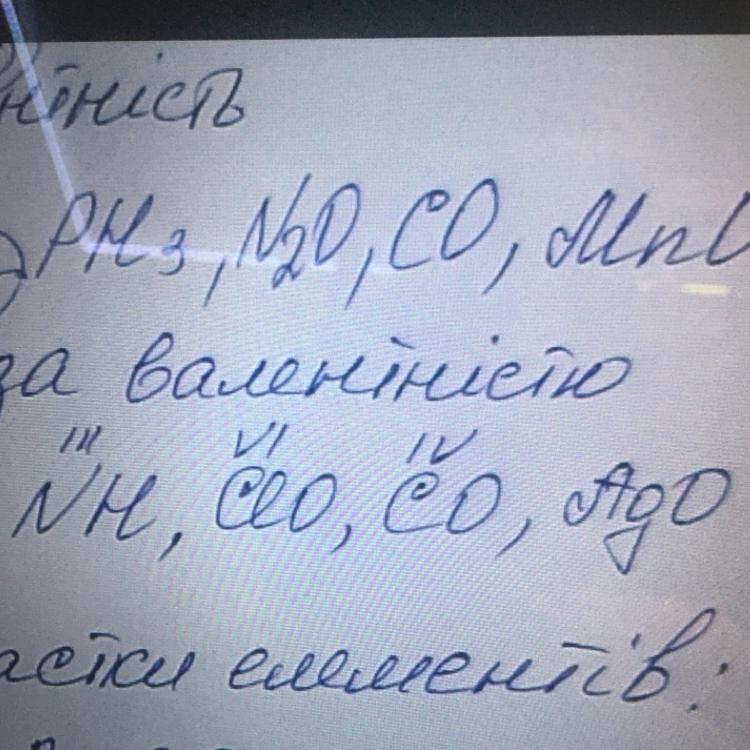 нтність
PH₃, N₂O, CO, Mn
за валентністю
III VI IV
NH, ClO, CO, AgO
астки елементів: